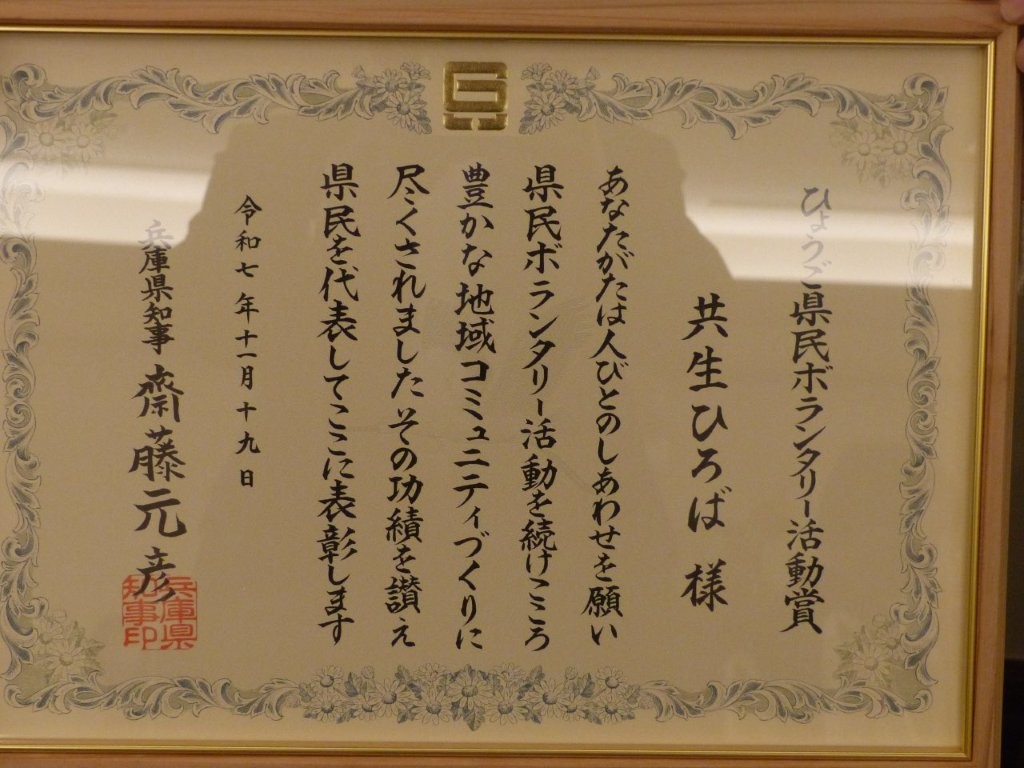 ひょうご県民ボランタリー活動賞
共生ひろば 様
あなたがたは人びとのしあわせを願い
県民ボランタリー活動を続けこころ
豊かな地域コミュニティづくりに
尽くされました その功績を讃え
県民を代表してここに表彰します
令和七年十一月十九日
兵庫県知事 齋藤元彦
兵庫県
知事印